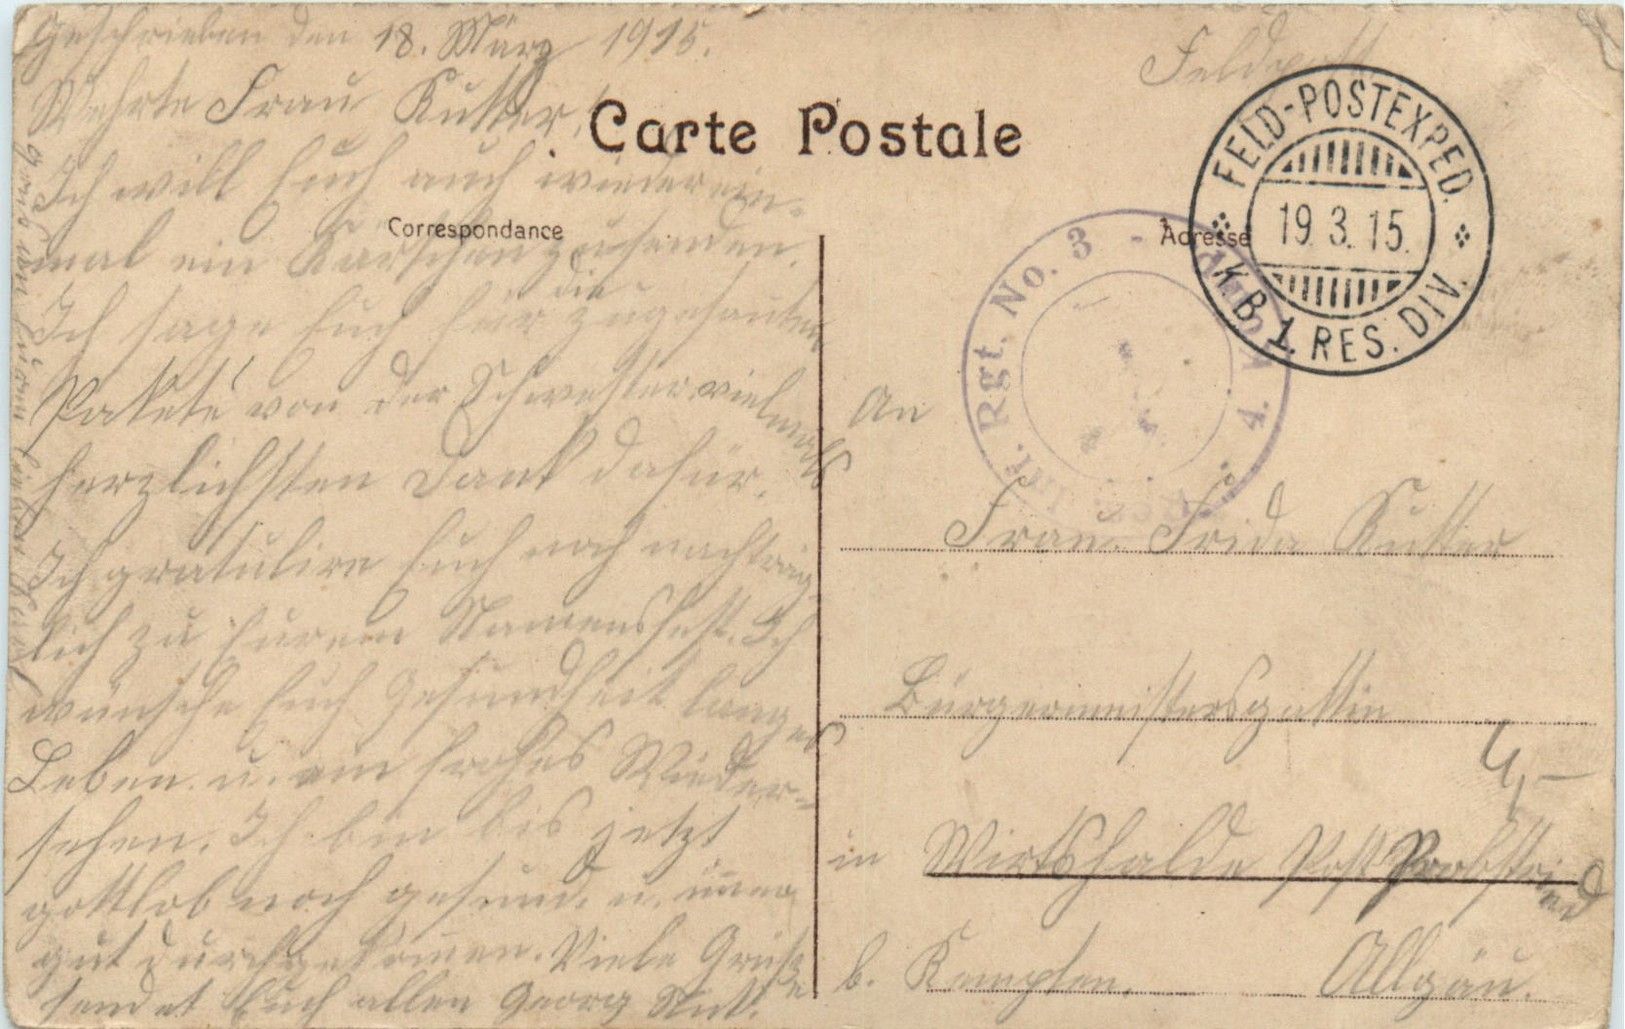 Geschrieben den 18. März 1915.
Wehrte Frau Kutter!
Ich will Euch auch wieder ein-
mal ein Kärtchen zusenden.
die
Ich sage Euch für zugesanten
Pakete von der Schwester vielmals
herzlichsten Dank dafür.
Ich gratulire Euch noch nachträg-
lich zu Eurem Namensfest. Ich
wünsche Euch Gesundheit langes
Leben u. ein frohes Wieder-
sehen. Ich bin bis jetzt
gottlob noch gesund u. immer
gut durchgekommen. Viele Grüße
sendet Euch allen Georg
Carte Postale
Correspondance
Adresse
Feldpost
FELD-POSTEXPED.
19.3.15.
K.B.1.RES.DIV.
Inf. Rgt. No. 3 -
4.
An
Frau Frida Kutter
Bürgermeistersgattin
in Wirtshalde Post Probstried
b. Kempten. Allgäu.